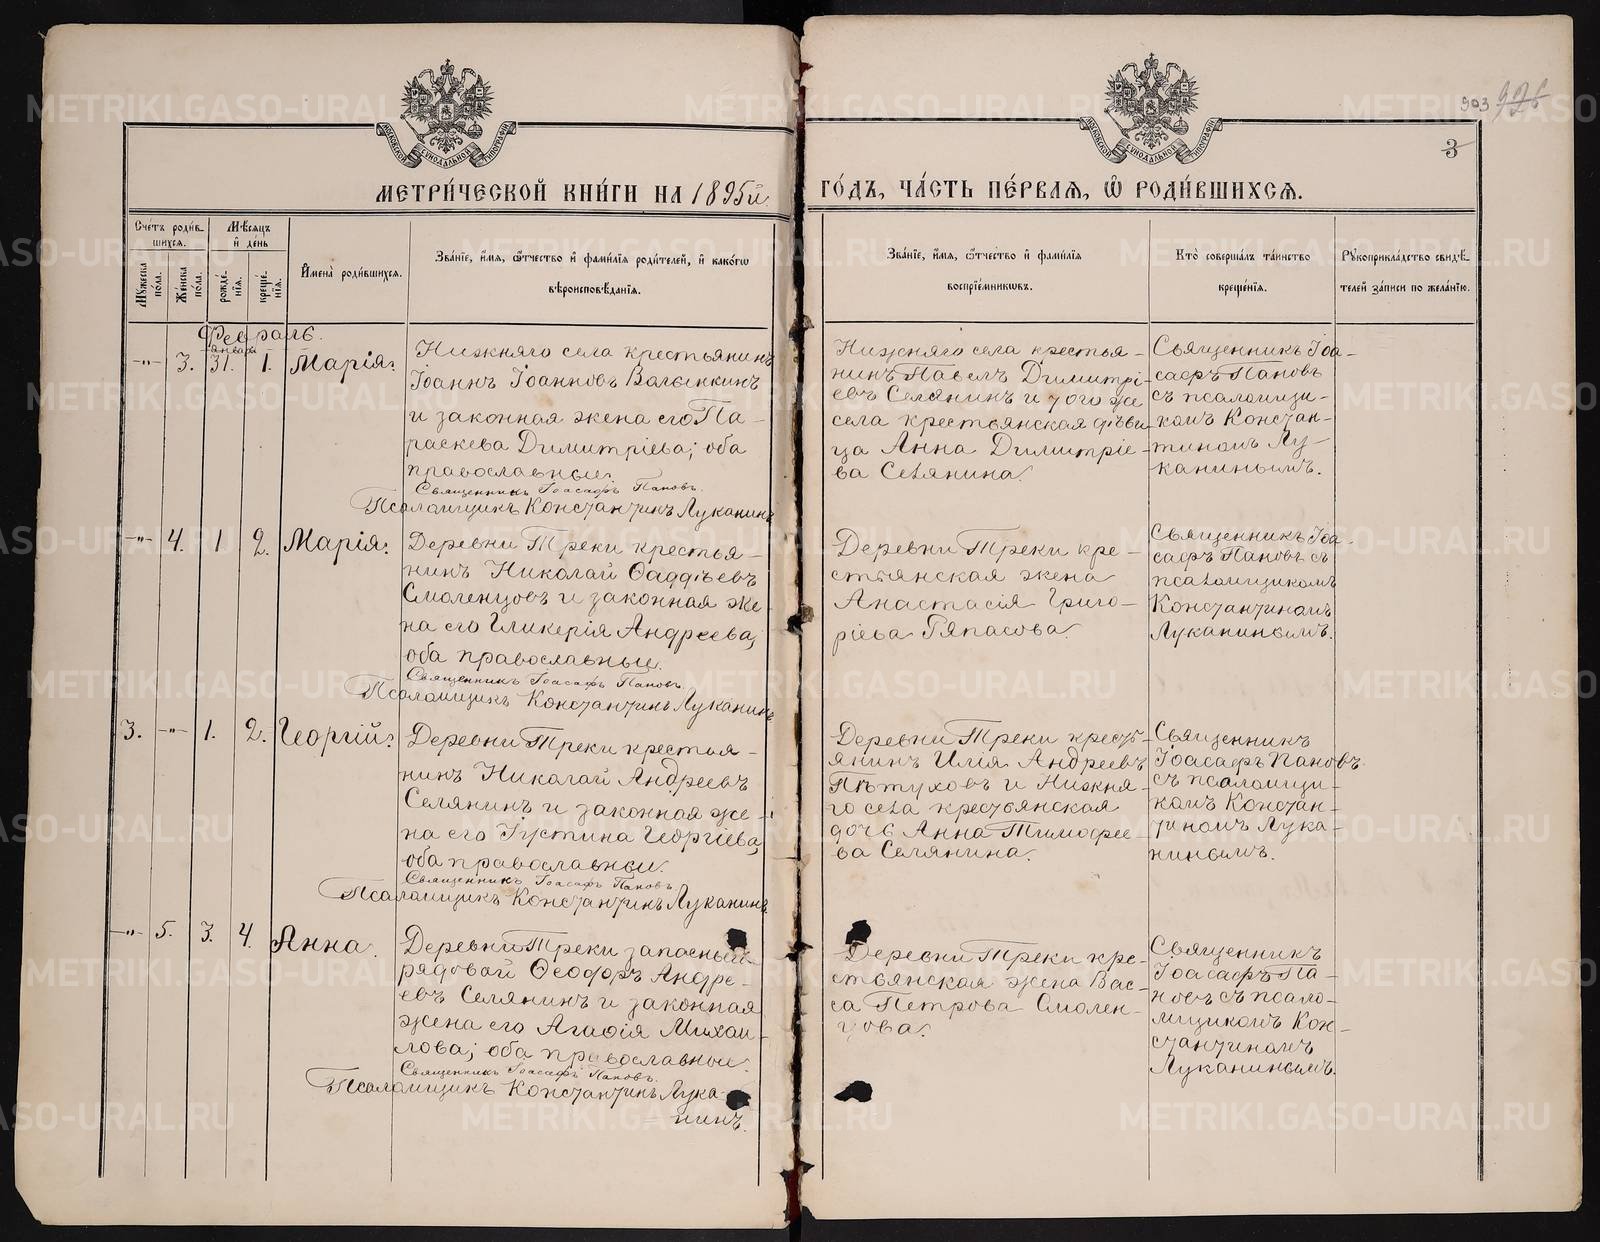 903 926
3
МЕТРИ́ЧЕСКОЙ КНИ́ГИ НА 1895й
ГО́ДЪ, ЧА́СТЬ ПЕ́РВАѦ, Ѡ҆ РОДИ́ВШИХСѦ.
Сче́тъ роди́в-
шихсѧ.
Мѣ́сѧцъ
и҆ де́нь
Мꙋ́жеска по́ла.
Же́нска по́ла.
рожде́-
нїѧ.
креще́-
нїѧ.
И҆мена̀ роди́вшихсѧ.
Зва́нїе, и҆́мѧ, ѻ҆́тчество и҆ фами́лїѧ роди́телей, и҆ како́гѡ
вѣроисповѣ́данїѧ.
Зва́нїе, и҆́мѧ, ѻ҆́тчество и҆ фами́лїѧ
воспрїе́мникѡвъ.
Кто̀ соверша́лъ та́инство
креще́нїѧ.
Рꙋкоприкла́дство свидѣ́-
телей за́писи по жела́нїю.
Февраль.
Января
-"- 3. 31. 1. Марія.
Нижняго села крестьянинъ
Іоаннъ Іоанновъ Валенкинъ
и законная жена его Па-
раскева Димитріева; оба
православные.
Священникъ Іоасафъ Пановъ.
Псаломщикъ Константинъ Луканинъ
Нижняго села крестья-
нинъ Павелъ Димитрі-
евъ Селянинъ и того же
села крестьянская дѣви-
ца Анна Димитріе-
ва Селянина.
Священникъ Іоа-
сафъ Пановъ
съ псаломщи-
комъ Констан-
тиномъ Лу-
канинымъ.
-"- 4. 1 2. Марія.
Деревни Треки крестья-
нинъ Николай Ѳаддѣевъ
Смоленцовъ и законная же-
на его Гликерія Андреева,
оба православные.
Священникъ Іоасафъ Пановъ.
Псаломщикъ Константинъ Луканинъ
Деревни Треки кре-
стьянская жена
Анастасія Григо-
ріева Гяпасова.
Священникъ Іоа-
сафъ Пановъ съ
псаломщикомъ
Константиномъ
Луканинымъ.
3. -"- 1. 2. Георгій.
Деревни Треки крестья-
нинъ Николай Андреевъ
Селянинъ и законная же-
на его Іустина Георгіева,
оба православные.
Священникъ Іоасафъ Пановъ
Псаломщикъ Константинъ Луканинъ
Деревни Треки кресть-
янинъ Илія Андреевъ
Пѣтуховъ и Нижня-
го села крестьянская
дочь Анна Тимофее-
ва Селянина.
Священникъ
Іоасафъ Пановъ
съ псаломщи-
комъ Констан-
тиномъ Лука-
нинымъ.
-"- 5. 3. 4. Анна.
Деревни Треки запасный
рядовой Ѳеодоръ Андре-
евъ Селянинъ и законная
жена его Агафія Михаи-
лова; оба православные.
Священникъ Іоасафъ Пановъ.
Псаломщикъ Константинъ Лука-
нинъ.
Деревни Треки кре-
стьянская жена Вас-
са Петрова Смолен-
цова.
Священникъ
Іоасафъ Па-
новъ съ псало-
мщикомъ Кон-
стантиномъ
Луканинымъ.